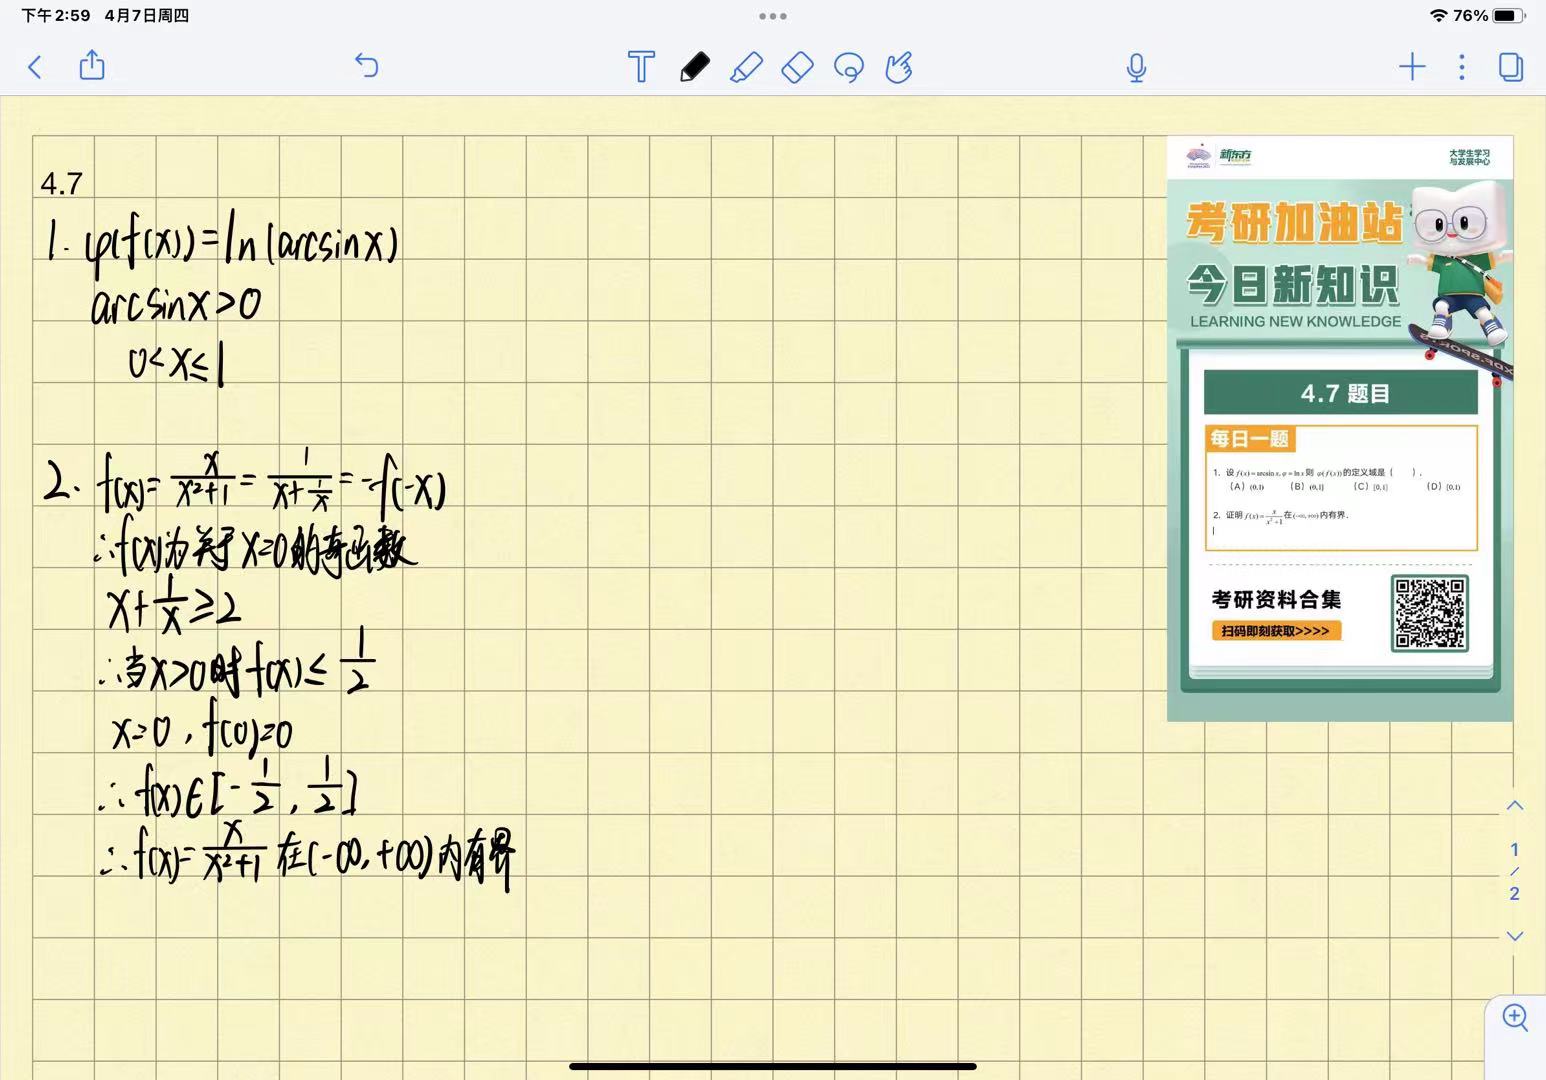 下午2:59 4月7日周四
76%
4.7
1. φ(f(x))=ln(arcsinx)
arcsinx>0
0<x≤1
2. f(x)=x/(x²+1)=1/(x+1/x)=-f(-x)
∴f(x)为关于x=0的奇函数
x+1/x≥2
∴当x>0时f(x)≤1/2
x=0,f(0)=0
∴f(x)∈[-1/2,1/2]
∴f(x)=x/(x²+1)在(-∞,+∞)内有界
新东方
大学生学习
与发展中心
考研加油站
今日新知识
LEARNING NEW KNOWLEDGE
4.7 题目
每日一题
1. 设 f(x)=arcsin x, φ=ln x 则 φ(f(x))的定义域是( ).
(A) (0,1) (B) (0,1] (C) [0,1] (D) [0,1)
2. 证明 f(x)=x/(x²+1) 在(-∞,+∞)内有界.
考研资料合集
扫码即刻获取>>>>
1
/
2